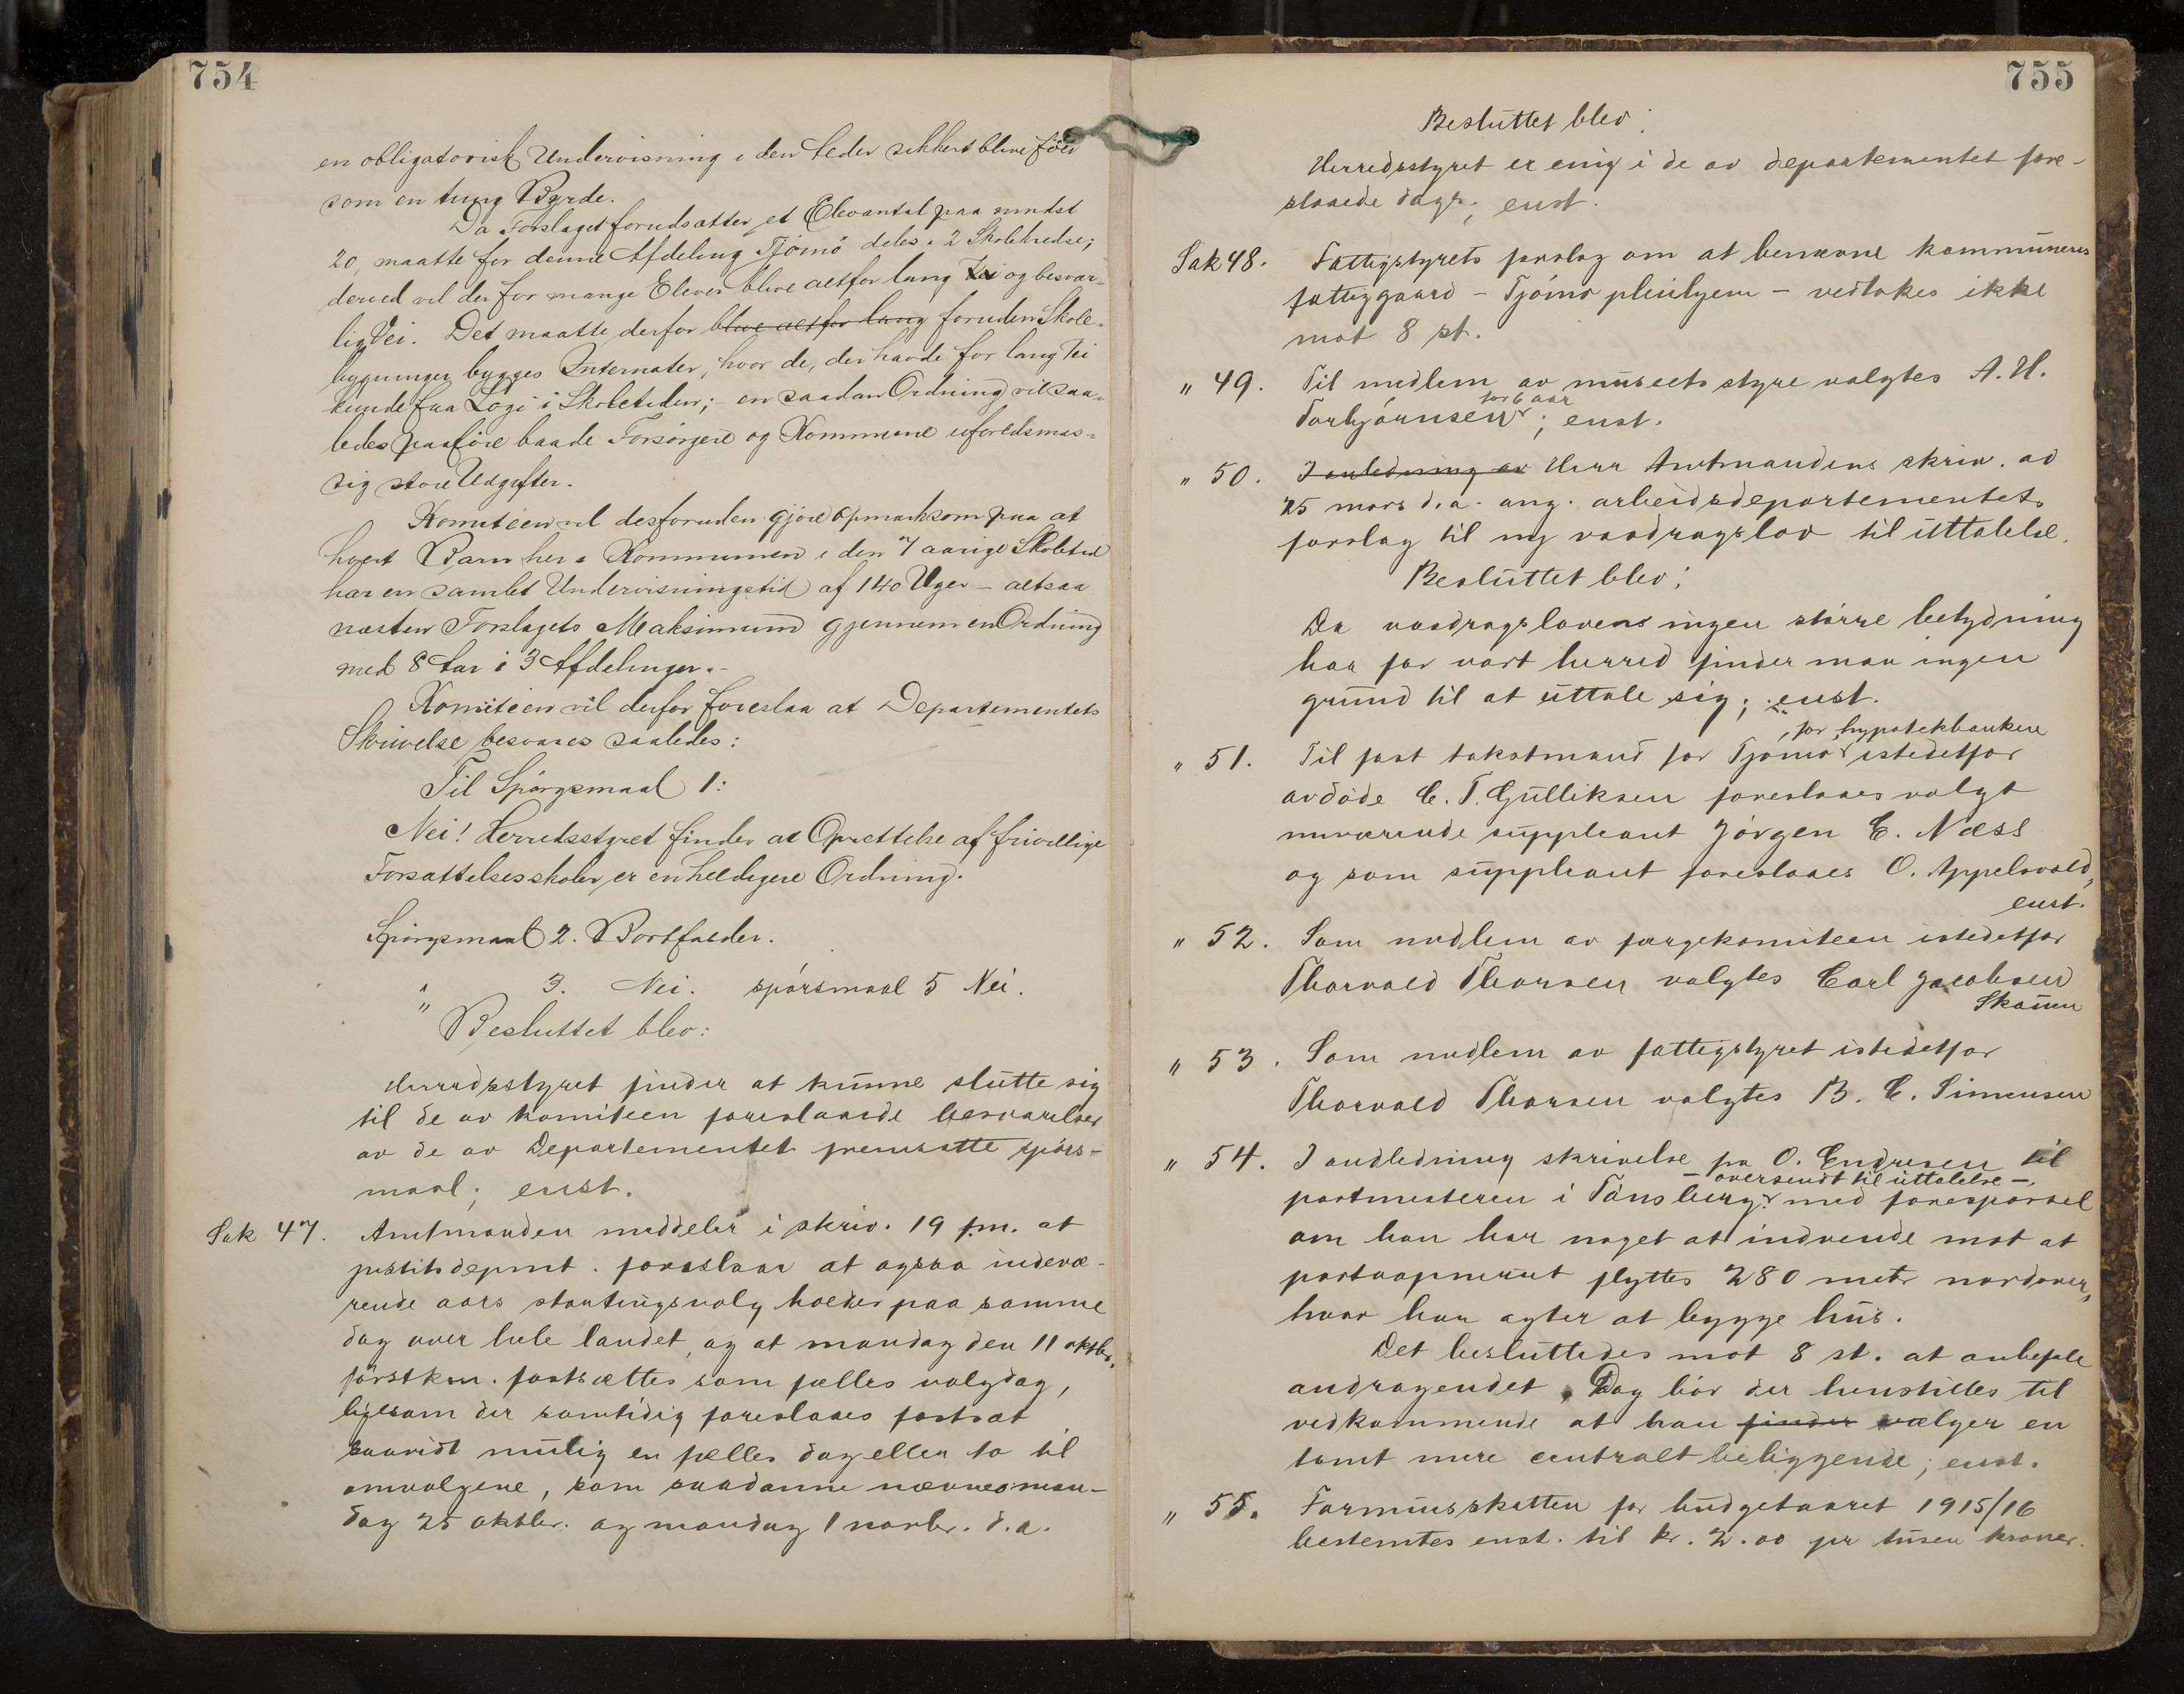 754
en obligatorisk Undervisning i den Leder sikkert blive følt
som en tung Byrde.
Da Forslaget forudsætter et Elevantal paa mindst
20, maatte for denne Afdeling Tjømø deles i 2 Skolekredse;
derved vil der for mange Elever blive altfor lang Vei og besvær-
lig Vei. Det maatte derfor blive altfor lang foruden Skole-
bygninger bygges Internater, hvor de, der havde for lang Vei
kunde faa Logi i Skoletiden; en saadan Ordning vil saa-
ledes paaføre baade Forsørgere og Kommune uforholdsmæs-
sig store Udgifter.
Komitéen vil desforuden gjøre opmærksom paa at
hvert Barn her i Kommunen i den 7 aarige Skoletid
har en samlet Undervisningstid af 140 Uger – altsaa
næsten Forslagets Maksimum gjennem en Ordning
med 8 Aar i 3 Afdelinger. –
Komitéen vil derfor foreslaa at Departementets
Skrivelse besvares saaledes:
Til Spørgsmaal 1:
Nei! Herredsstyret finder at Oprettelse af frivillige
Forsættelsesskoler er en heldigere Ordning.
Spørgsmaal 2. Bortfalder.
" 3. Nei. spørsmaal 5 Nei.
Besluttet blev:
Herredsstyret finder at kunne slutte sig
til de av komiteen foreslaaede besvarelser
av de av Departementet fremsatte spørs-
maal; enst.
Sak 47. Amtmanden meddeler i skriv. 19 f.m. at
justitsdepmt. foreslaar at ogsaa indevæ-
rende aars stortingsvalg holdes paa samme
dag over hele landet, og at mandag den 11 oktbr.
førstkm. fastsættes som fælles valgdag,
ligesom der samtidig foreslaaes fastsat
saavidt mulig en fælles dag eller to til
omvalgene, som saadanne nævnes man-
dag 25 oktbr. og mandag 1 novbr. d.a.
755
Besluttet blev:
Herredsstyret er enig i de av departementet fore-
slaaede dage; enst.
Sak 48. Fattigstyrets forslag om at benævne kommunens
fattiggaard – Tjømø pleiehjem – vedtokes ikke
mot 8 st.
" 49. Til medlem av museets styre valgtes A. H.
for 6 aar
Torbjørnsen; enst.
" 50. I anledning av Herr Amtmandens skriv. av
25 mars d.a. ang. arbeidsdepartementets
forslag til ny vasdragslov til uttalelse.
Besluttet blev:
Da vasdragslovens ingen større betydning
har for vort herred finder man ingen
grund til at uttale sig; enst.
, for hypotekbanken
" 51. Til fast takstmand for Tjømø istedetfor
avdøde C. T. Gulliksen foreslaaes valgt
nuværende suppleant Jørgen C. Næss
og som suppleant foreslaaes O. Appelsvold,
enst.
" 52. Som medlem av færgekomiteen istedetfor
Thorvald Thorsen valgtes Carl Jacobsen
" 53. Som medlem av fattigstyret istedetfor
Thorvald Thorsen valgtes B. C. Simensen
" 54. I andledning skrivelse fra O. Endresen til
– oversendt til uttalelse –
postmesteren i Tønsberg med forespørsel
om han har noget at indvende mot at
postaapneriet flyttes 280 metr nordover,
hvor han agter at bygge hus.
Det besluttedes mot 8 st. at anbefale
andragendet. Dog bør der henstilles til
vedkommende at han finder vælger en
tomt mere centralt beliggende; enst.
" 55. Formuesskatten for budgetaaret 1915/16
bestemtes enst. til kr. 2.00 pr tusen kroner.